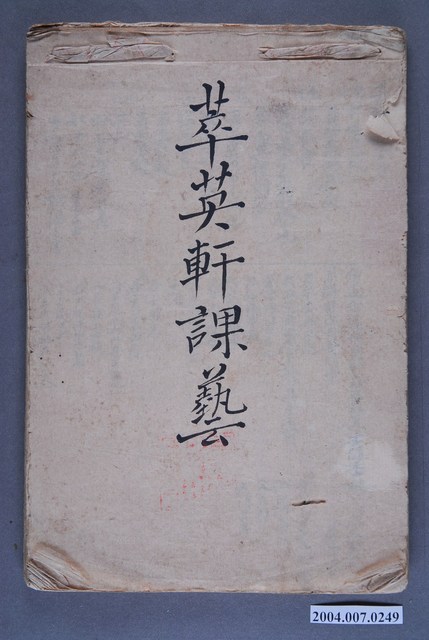 萃英軒課藝
2004.007.0249